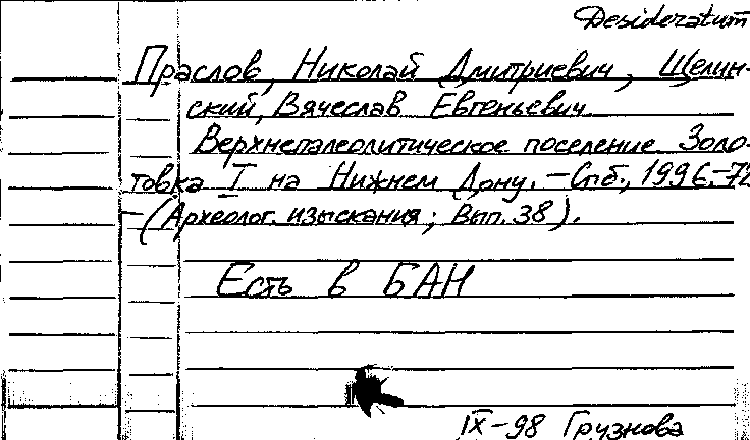 Desideratum
Праслов, Николай Дмитриевич, Щелин-
ский, Вячеслав Евгеньевич
Верхнепалеолитическое поселение Золо-
товка I на Нижнем Дону. – Спб., 1996. – 72
– (Археолог. изыскания; Вып. 38).
Есть в БАН
IX – 98 Грузнова